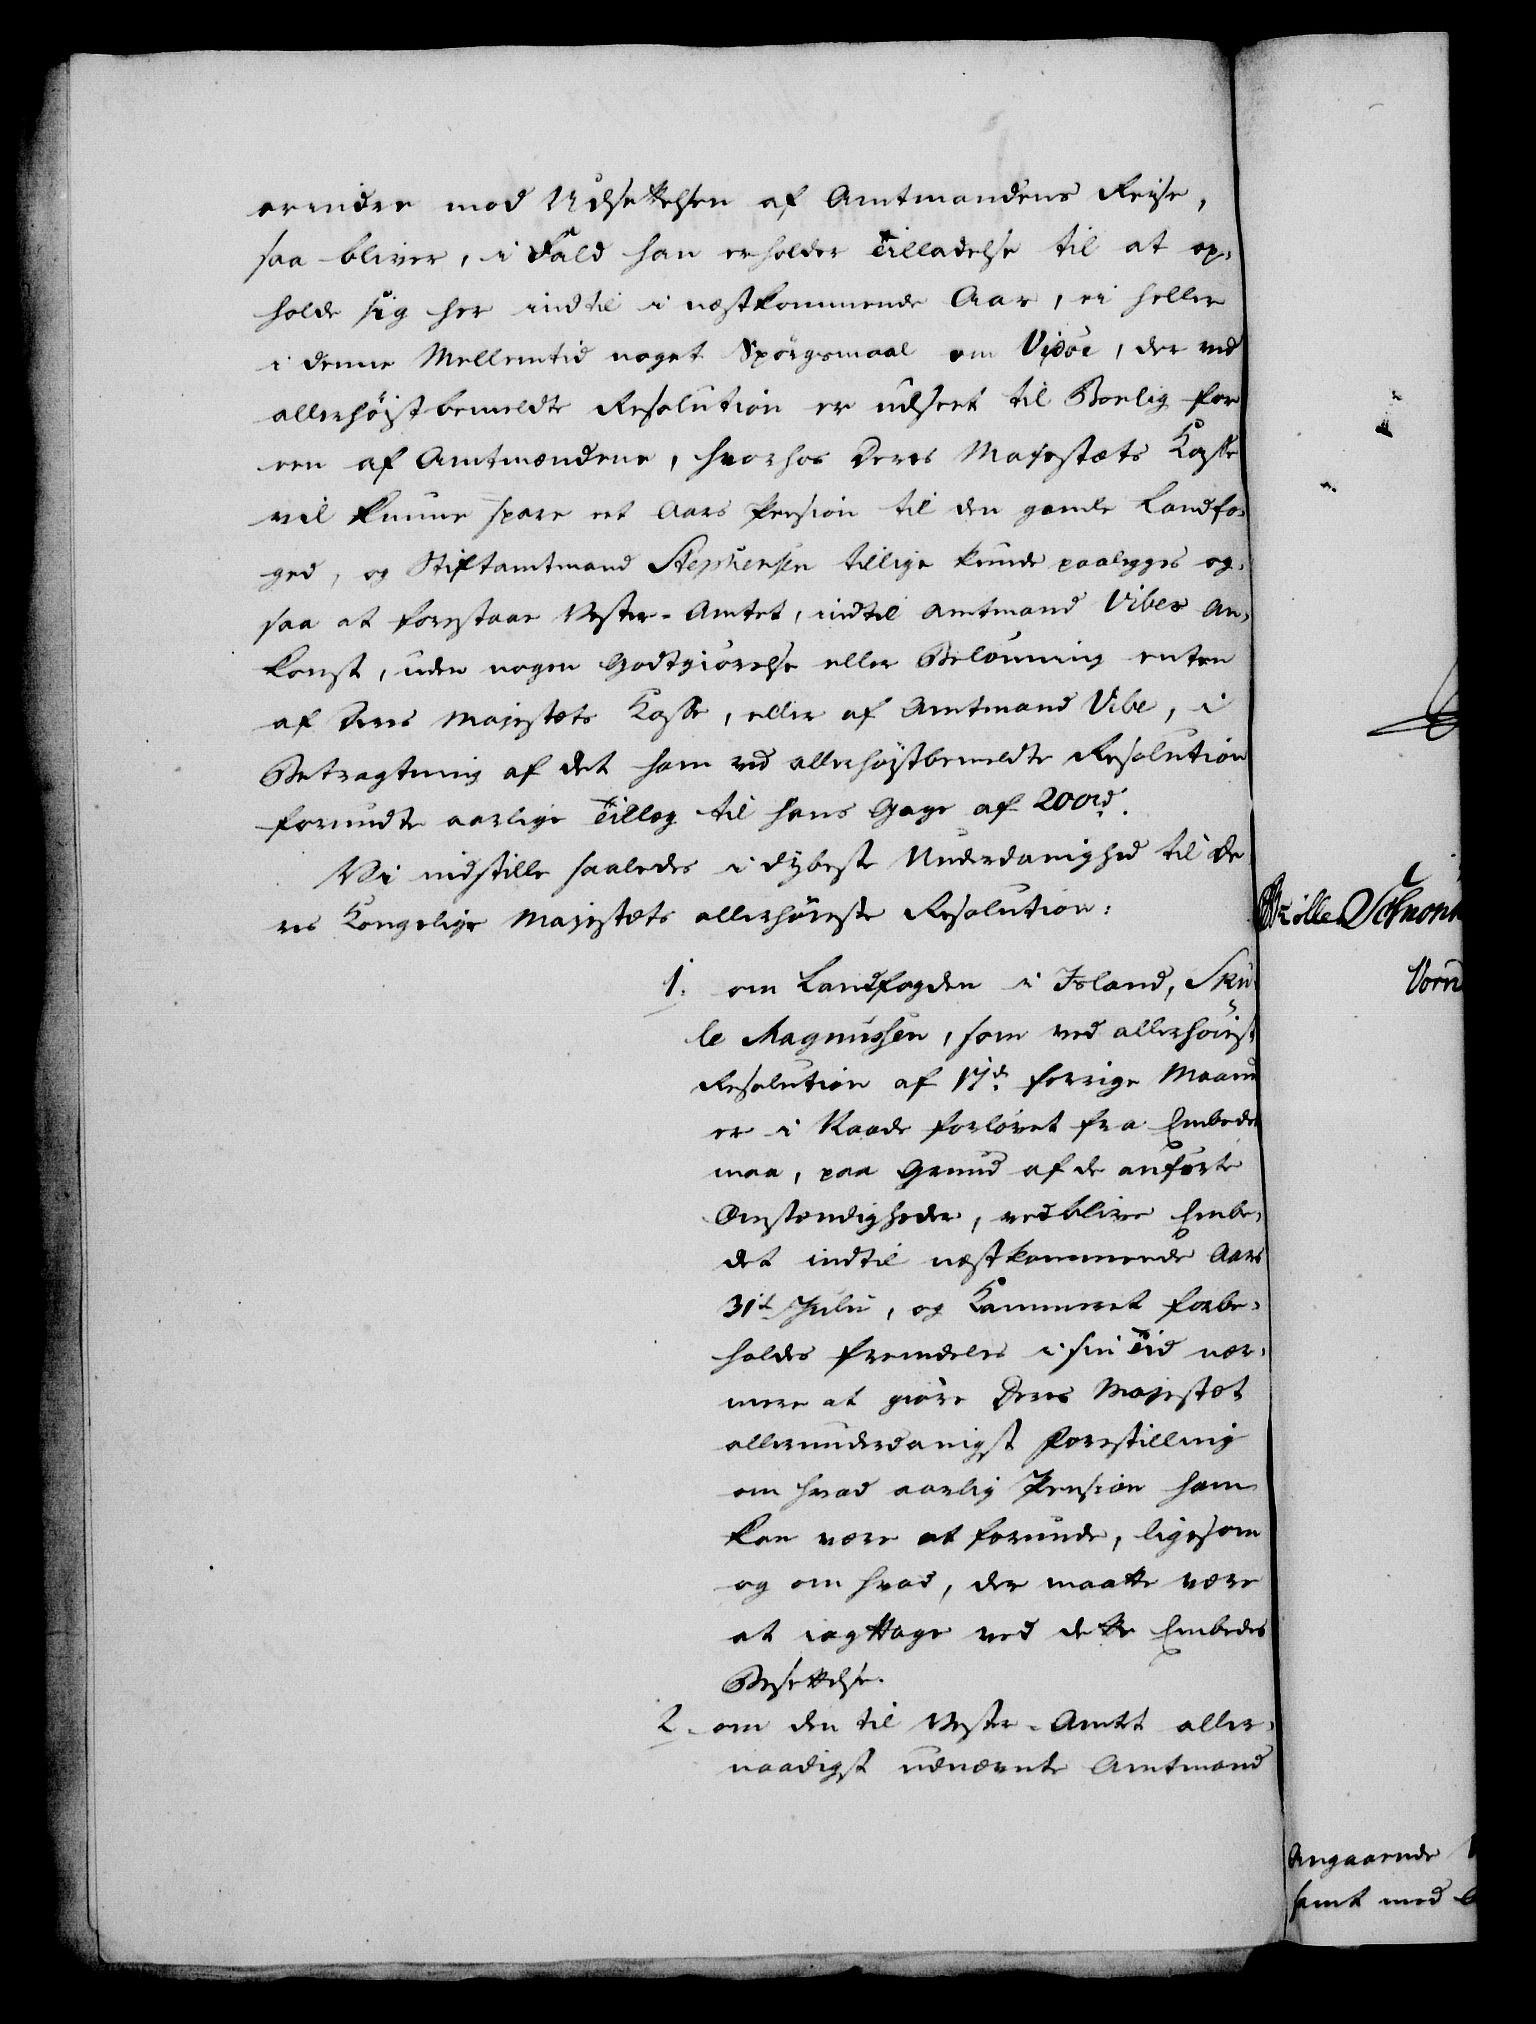 erindre mod Udsættelsen af Amtmandens Reise,
saa bliver, i Fald han erholder Tilladelse til at op-
holde sig her indtil i næstkommende Aar, ei heller
i denne Mellemtid noget Spörgsmaal om Vidöe, der ved
allerhöistbemeldte Resolution er udseet til Boelig for
een af Amtmændene, hvorhos Deres Majestæts Kasse
vil kunne spare eet Aars Pension til den gamle Landfo-
ged, og Stiftamtmand Stephensen tillige kunde paalegges og-
saa at forestaae Vester-Amtet, indtil Amtmand Vibes An-
komst, uden nogen Godtgiörelse eller Belönning enten
af Deres Majestæts Kasse, eller af Amtmand Vibe, i
Betragtning af det ham ved allerhöistbemeldte Resolution
forundte aarlige Tillæg til hans Gage af 200 rd.
Vi indstille saaledes i dybeste Underdanighed til De
res Kongelige Majestæts allerhöieste Resolution:
1. om Landfogden i Island, Sku-
le Magnussen, som ved allerhöiest
Resolution af 17d. forrige Maaned
er i Naade forlövet fra Embedet
maa, paa Grund af de anförte
Omstændigheder, vedblive Embe-
det indtil næstkommende Aars
31te Julii, og Kammeret forbe-
holdes fremdeles i sin Tid nær-
mere at giöre Deres Majestæt
allerunderdanigst Forestilling
om hvad aarlig Pension ham
kan være at forunde, ligesom
og om hvad, der maatte være
at iagttage ved dette Embedes
Besættelse.
2. om den til Vester-Amtet aller-
naadigst udnævnte Amtmand
Angaaende
samt med